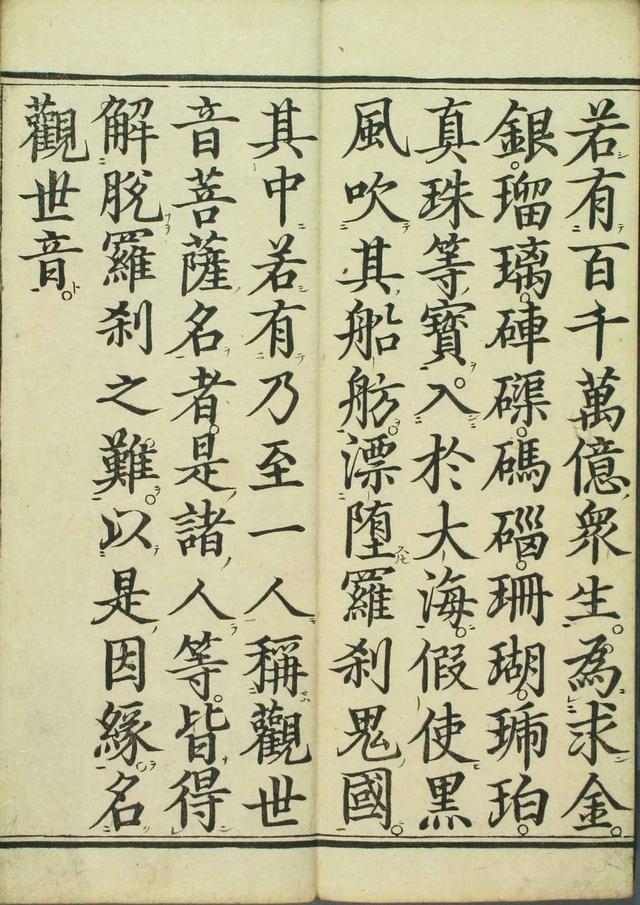 若有百千萬億衆生爲求金
銀瑠璃硨磲碼碯珊瑚琥珀
真珠等寶入於大海假使黑
風吹其船舫漂墮羅刹鬼國
其中若有乃至一人稱觀世
音菩薩名者是諸人等皆得
解脫羅刹之難以是因緣名
觀世音